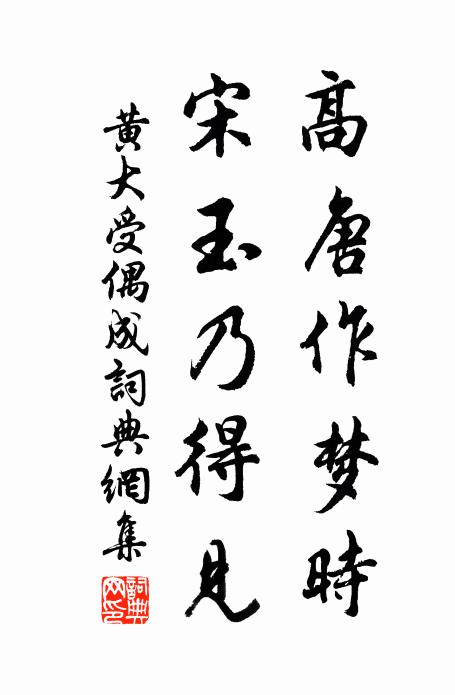 高唐作梦時
宋玉乃得見
黄大受偶成詞典網集
詞典网印